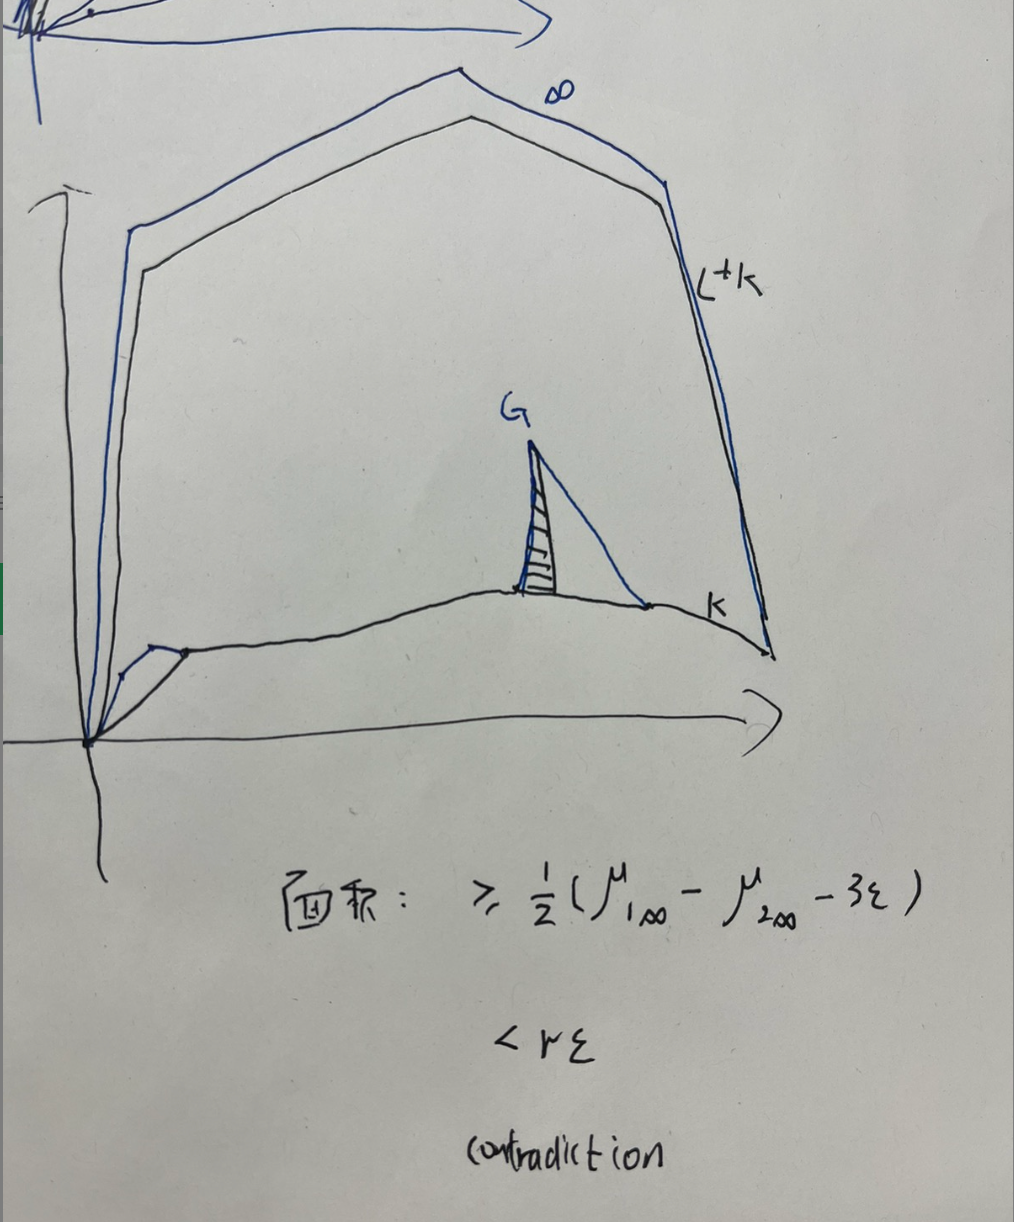 ∞
L+k
G
k
面积: ≥ 1/2 (μ1∞ - μ2∞ - 3ε)
< rε
contradiction